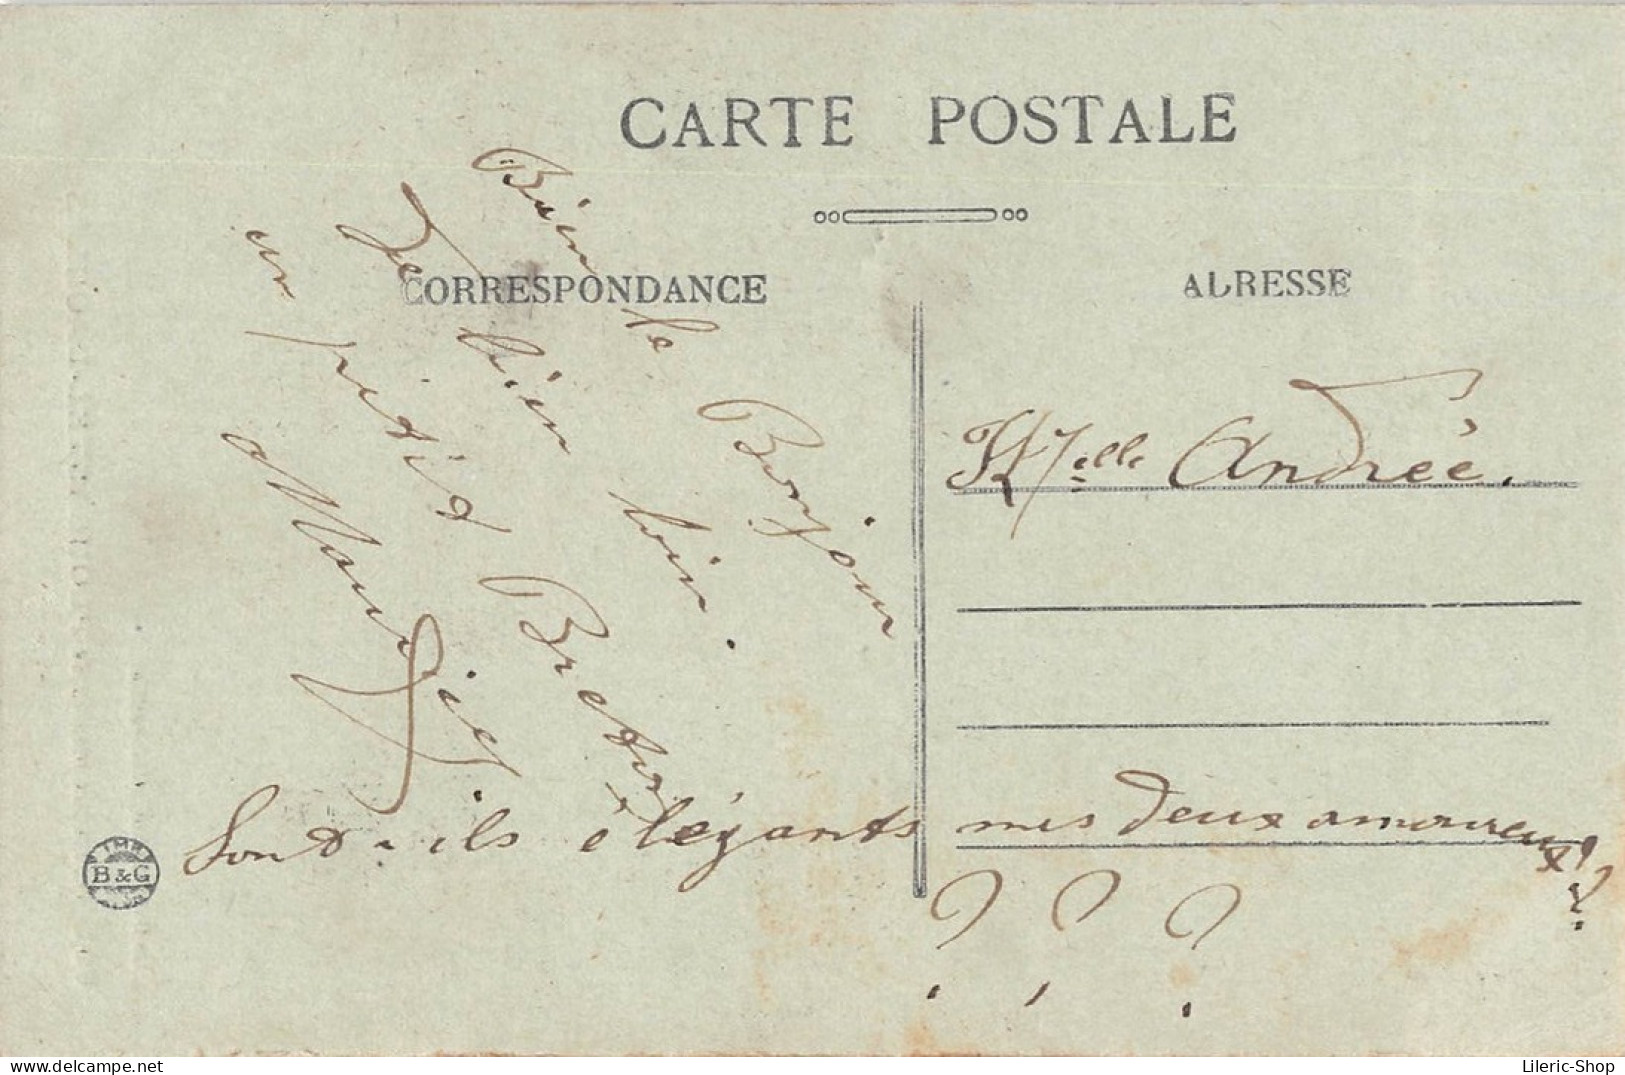 CARTE POSTALE
CORRESPONDANCE
ADRESSE
Bien le Bonjour
De bien loin.
un petit Breton
Mlle Andrée.
Sont-ils élégants mes deux amoureux ??
? ? ?
IMP
B & G
Lileric-Shop